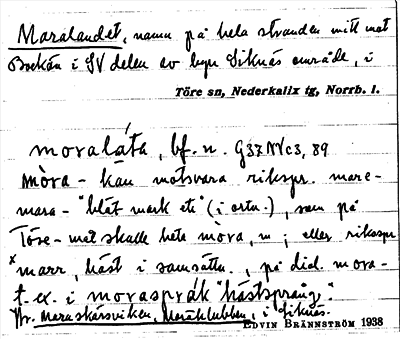 Maralandet, namn på hela stranden mitt mot
Bockön i SV delen av byn Siknäs område, i
Töre sn, Nederkalix tg, Norrb. l.
moralåta, bf. n. G37NVc3, 89
mòra - kan motsvara rikspr. mare-
mara- "blöt mark etc" (i ortn.), som på
Töre-mål skulle heta mòra, m; eller rikspr
*marr, häst i samsättn., på dial. mora-
t. ex. i moraspråk "hästsprång".
Jfr. Maraskärsviken, Maraklubben, i Siknäs.
EDVIN BRÄNNSTRÖM 1938